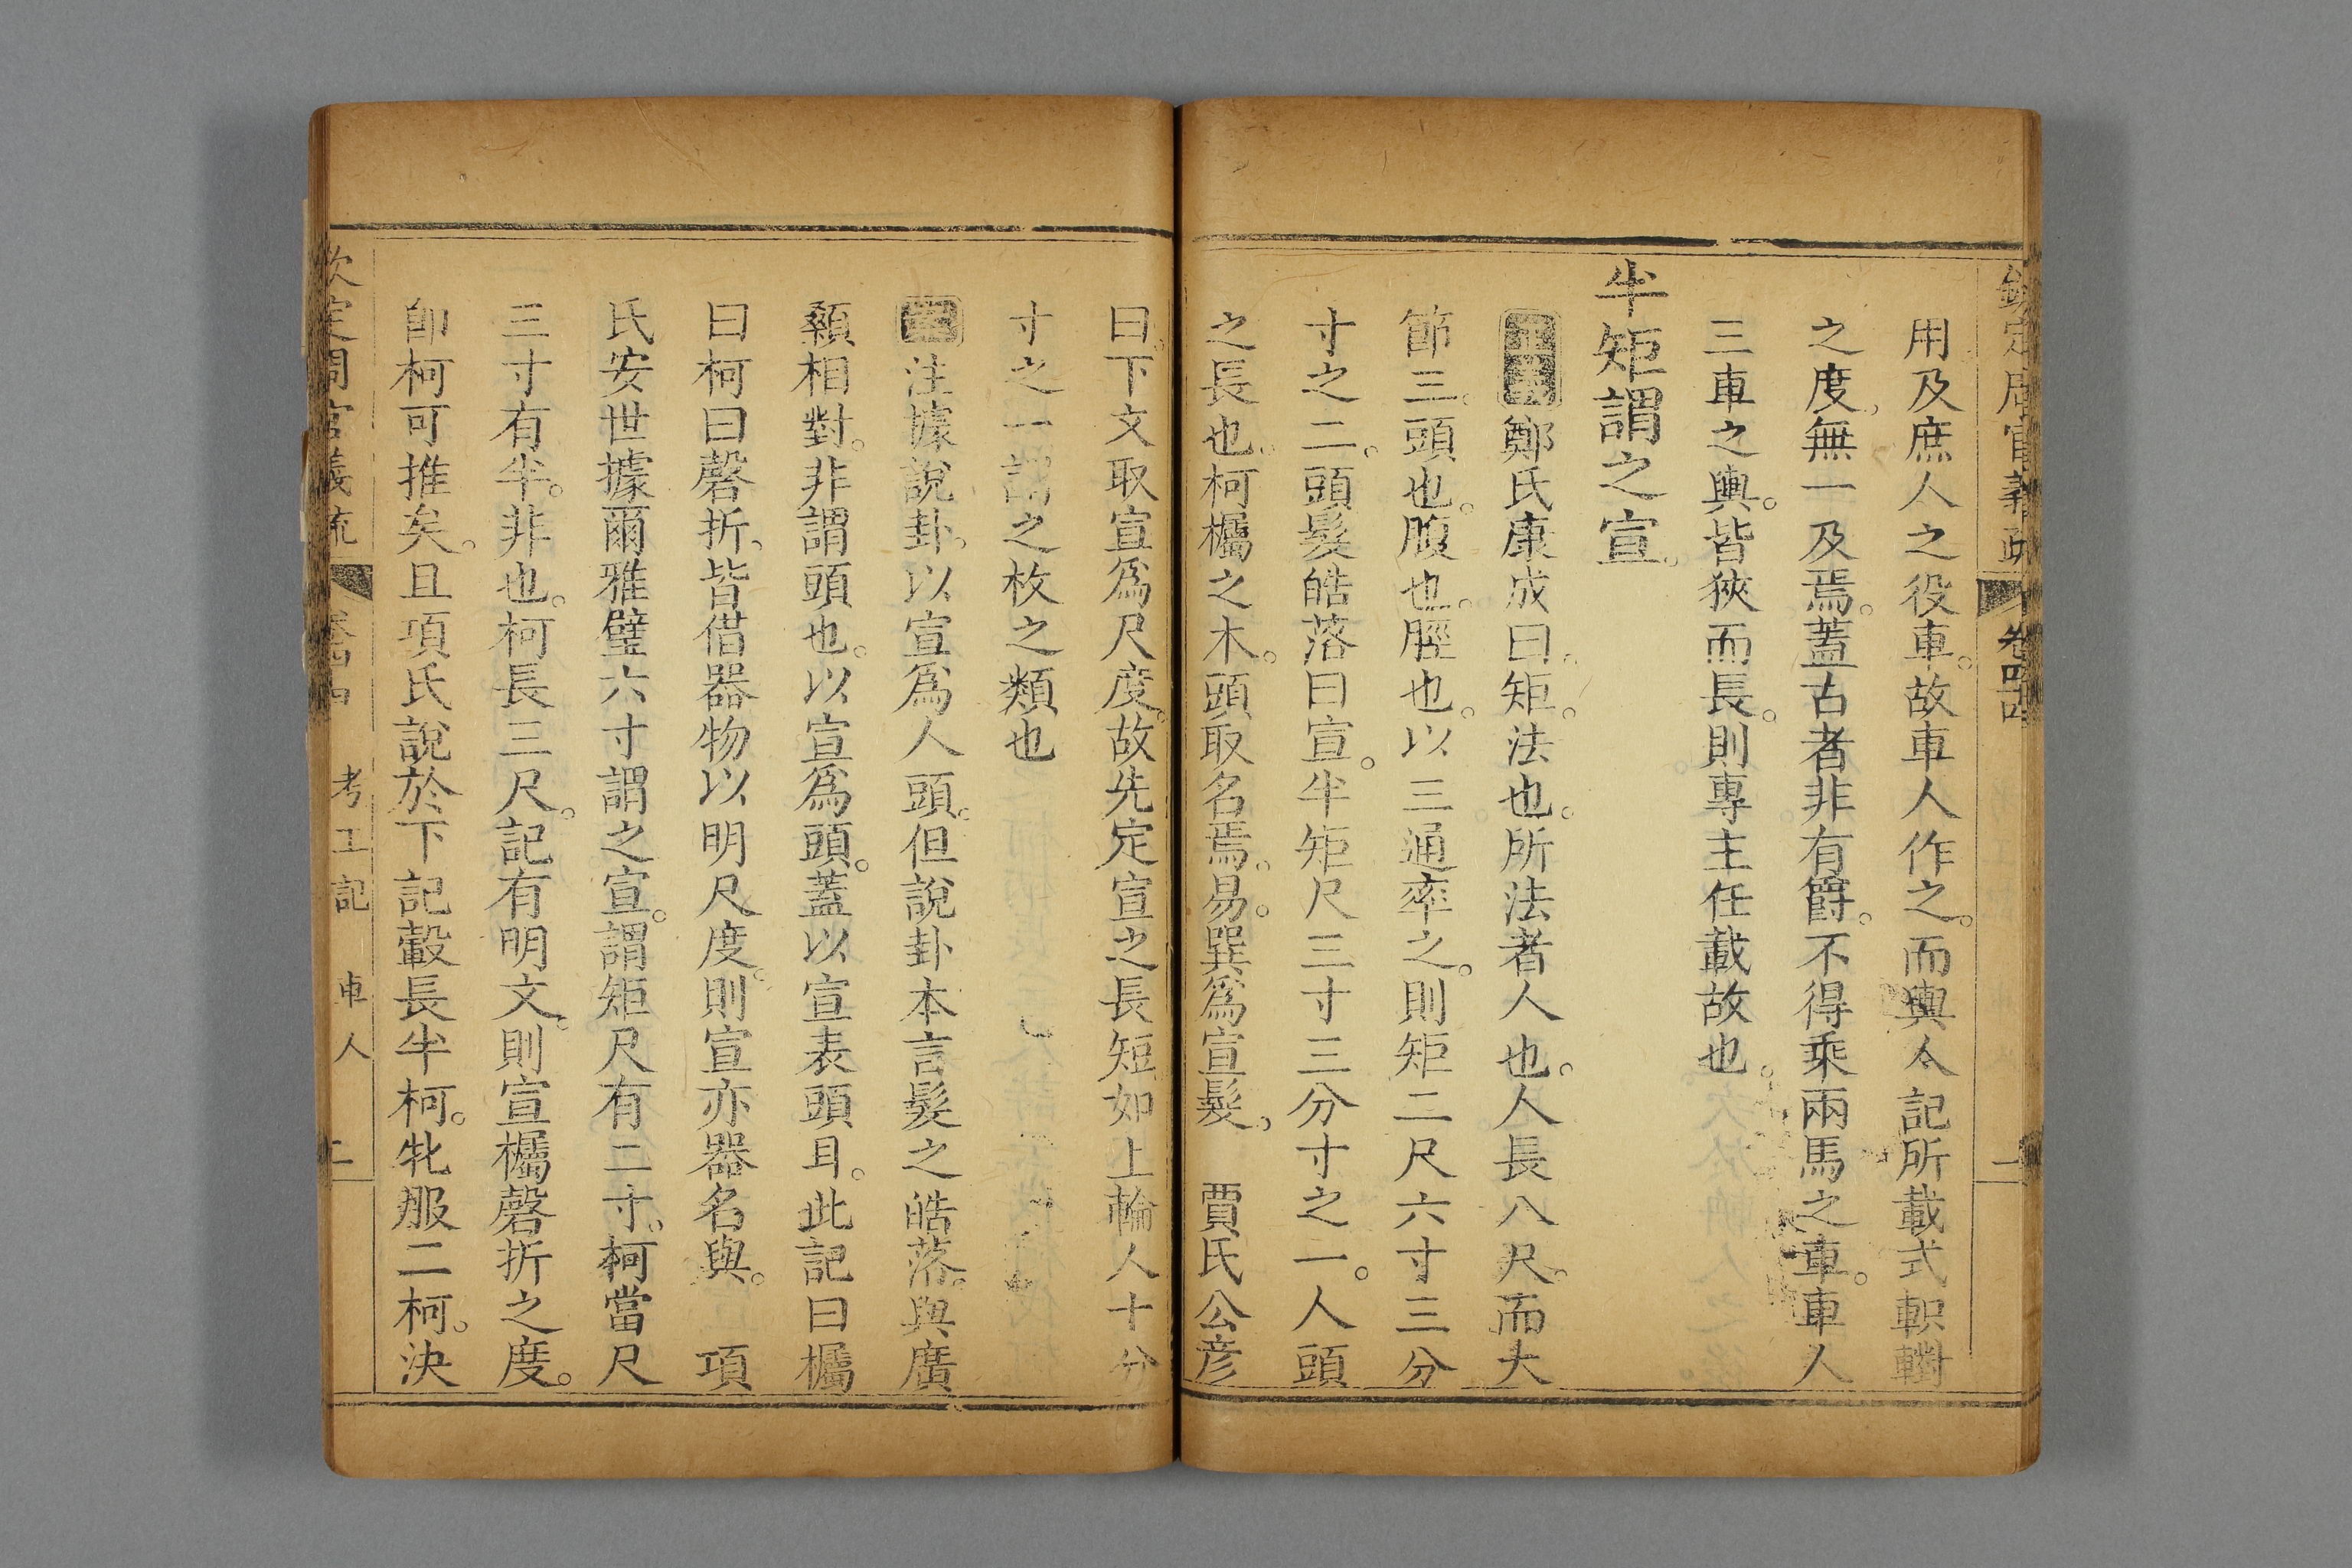 欽定周官義疏 卷四四 二
用及庶人之役車。故車人作之。而輿人記所載式軹轛
之度。無一及焉。蓋古者非有爵。不得乘兩馬之車。車人
三車之輿。皆狹而長。則專主任載故也。
半矩謂之宣。
鄭氏康成曰。矩。法也。所法者人也。人長八尺。而大
節三。頭也。腹也。脛也。以三通率之。則矩二尺六寸三分
寸之二。頭髮皓落曰宣。半矩尺三寸三分寸之一。人頭
之長也。柯欘之木。頭取名焉。易。巽爲宣髮。 賈氏公彦
曰。下文取宣爲尺度。故先定宣之長短。如上輪人十分
寸之一謂之枚之類也
注據說卦。以宣爲人頭。但說卦本言髮之皓落。與廣
顙相對。非謂頭也。以宣爲頭。蓋以宣表頭耳。此記曰欘
曰柯曰磬折。皆借器物以明尺度。則宣亦器名與。 項
氏安世據爾雅璧六寸謂之宣。謂矩尺有二寸。柯當尺
三寸有半。非也。柯長三尺。記有明文。則宣欘磬折之度。
卽柯可推矣。且項氏說於下記轂長半柯。牝服二柯。決
欽定周官義疏 卷四四 考工記 車人 二